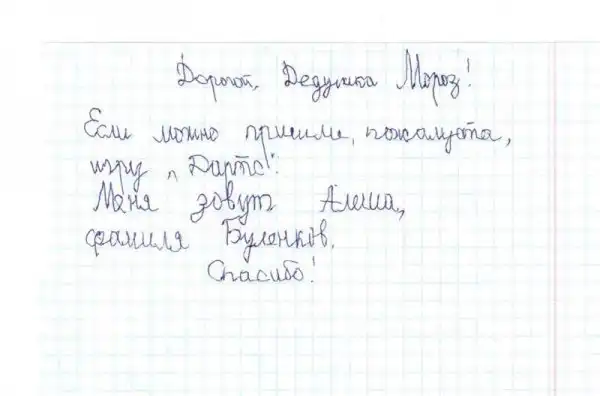 Дорогой, Дедушка Мороз!
Если можно пришли, пожалуйста,
игру "Дартс".
Меня зовут Алеша,
фамиля Буленков.
Спасибо!